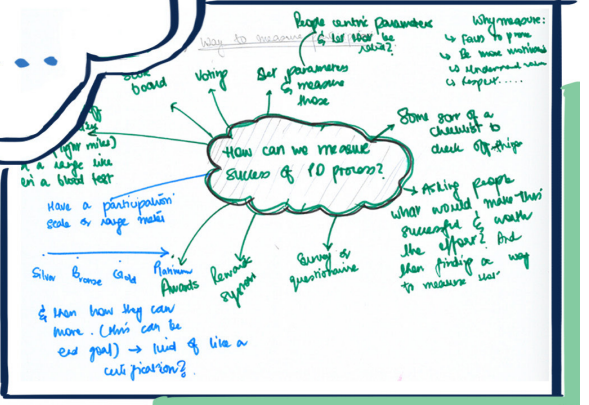 People centric parameters
Way to measure
Why measure:
Voting
Set parameters
& measure
those
board
Some sort of a
checklist to
check off things
How can we measure
success of PD process?
range like
in a blood test
Have a participation
scale or range meter
Silver Bronze Gold Platinum
Awards
Reward
system
Survey or
questionnaire
Asking people
what would make this
successful & worth
the effort? And
then finding a way
to measure that
& then how they can
more. (this can be
end goal) → kind of like a
certification?